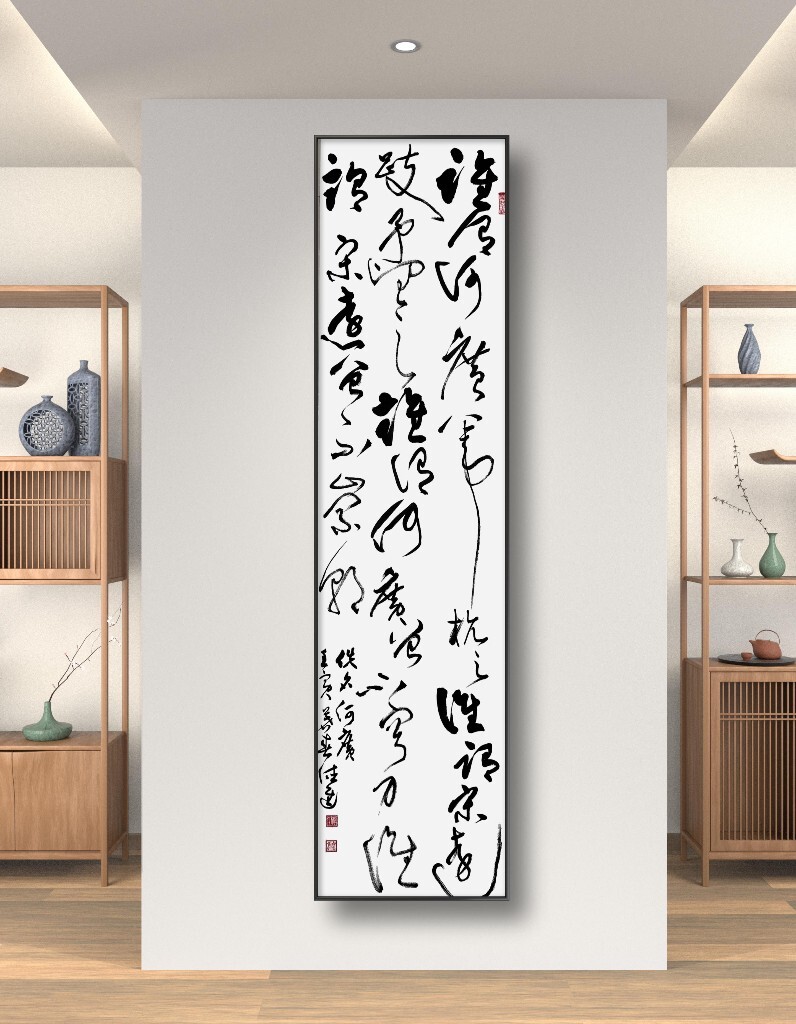 誰謂河廣一葦杭之誰謂宋遠
跂予望之誰謂河廣曾不容刀誰
謂宋遠曾不崇朝
佚名河廣
壬寅暮春